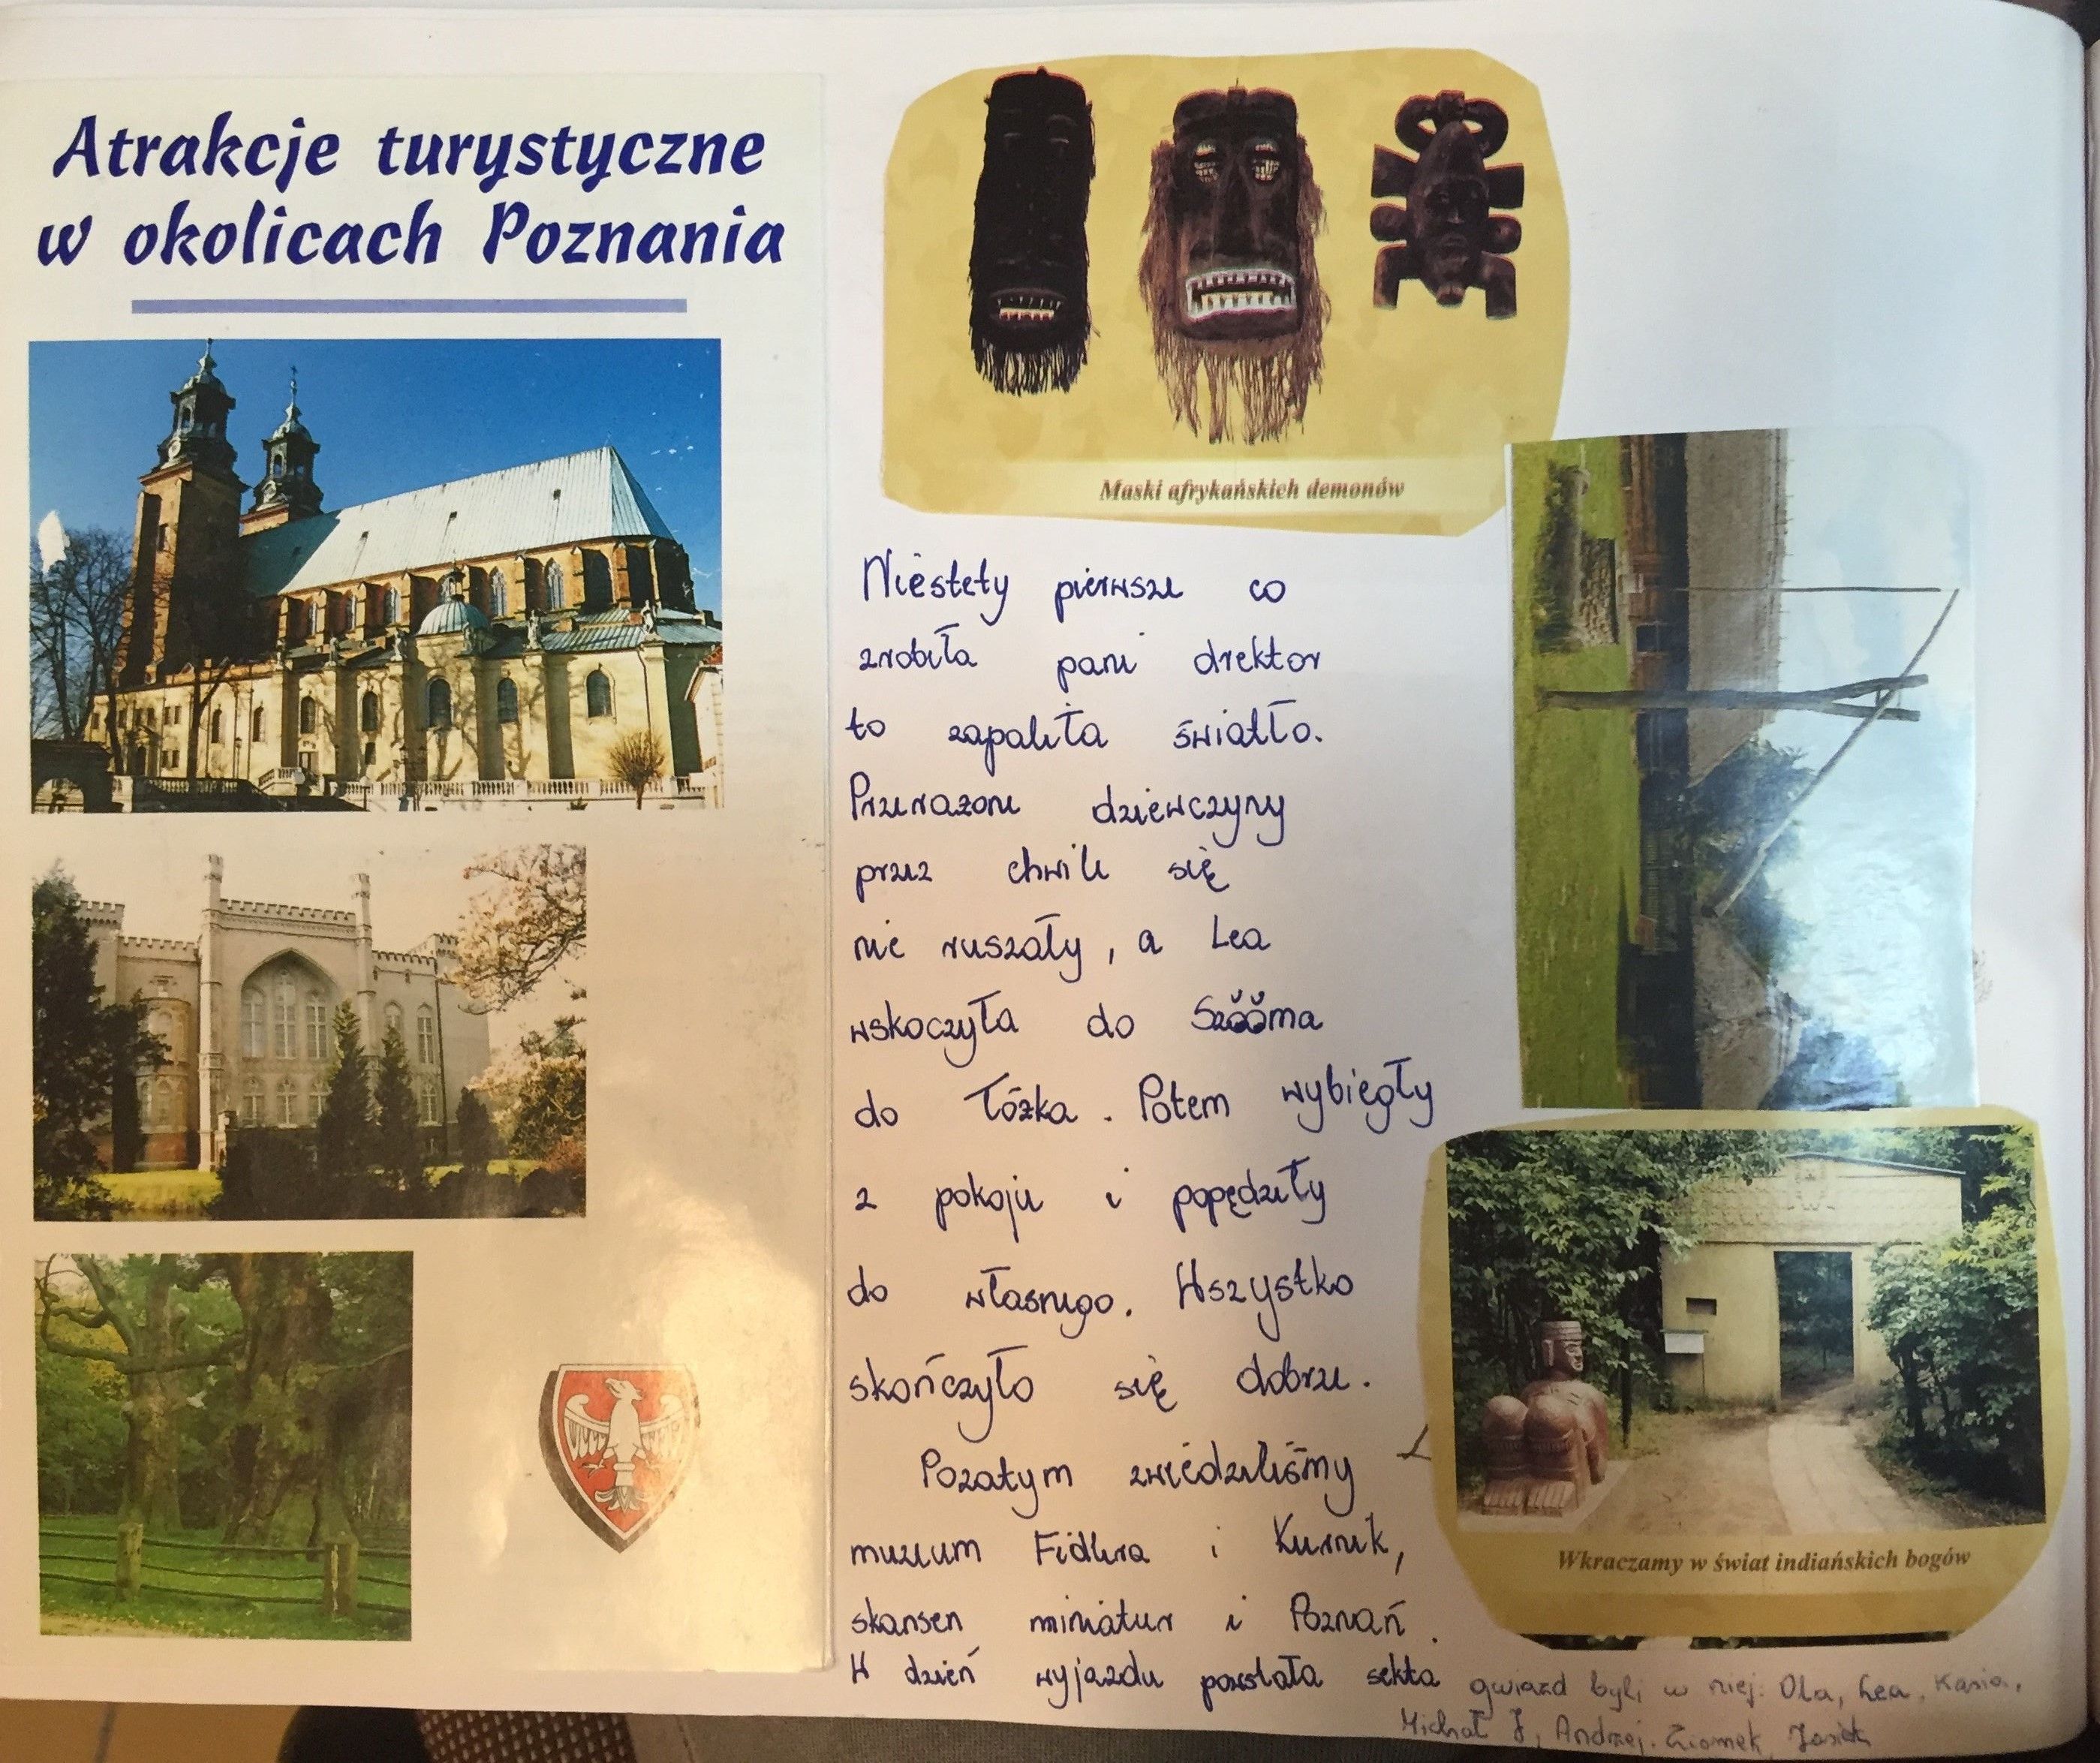 Atrakcje turystyczne
w okolicach Poznania
Maski afrykańskich demonów
Niestety pierwsze co
zrobiła pani drektor
to zapaliła światło.
Przerażone dziewczyny
przez chwile się
nie ruszały, a Lea
wskoczyła do Szŏŏma
do łóżka. Potem wybiegły
z pokoju i popędziły
do własnego. Wszystko
skończyło się dobrze.
Pozatym zwiedziliśmy
muzeum Fidlera i Kurnik,
skansen miniatur i Poznań.
W dzień wyjazdu powstała sekta gwiazd byli w niej: Ola, Lea, Kasia,
Michał J, Andrzej. Ziomek, Jasiek
Wkraczamy w świat indiańskich bogów